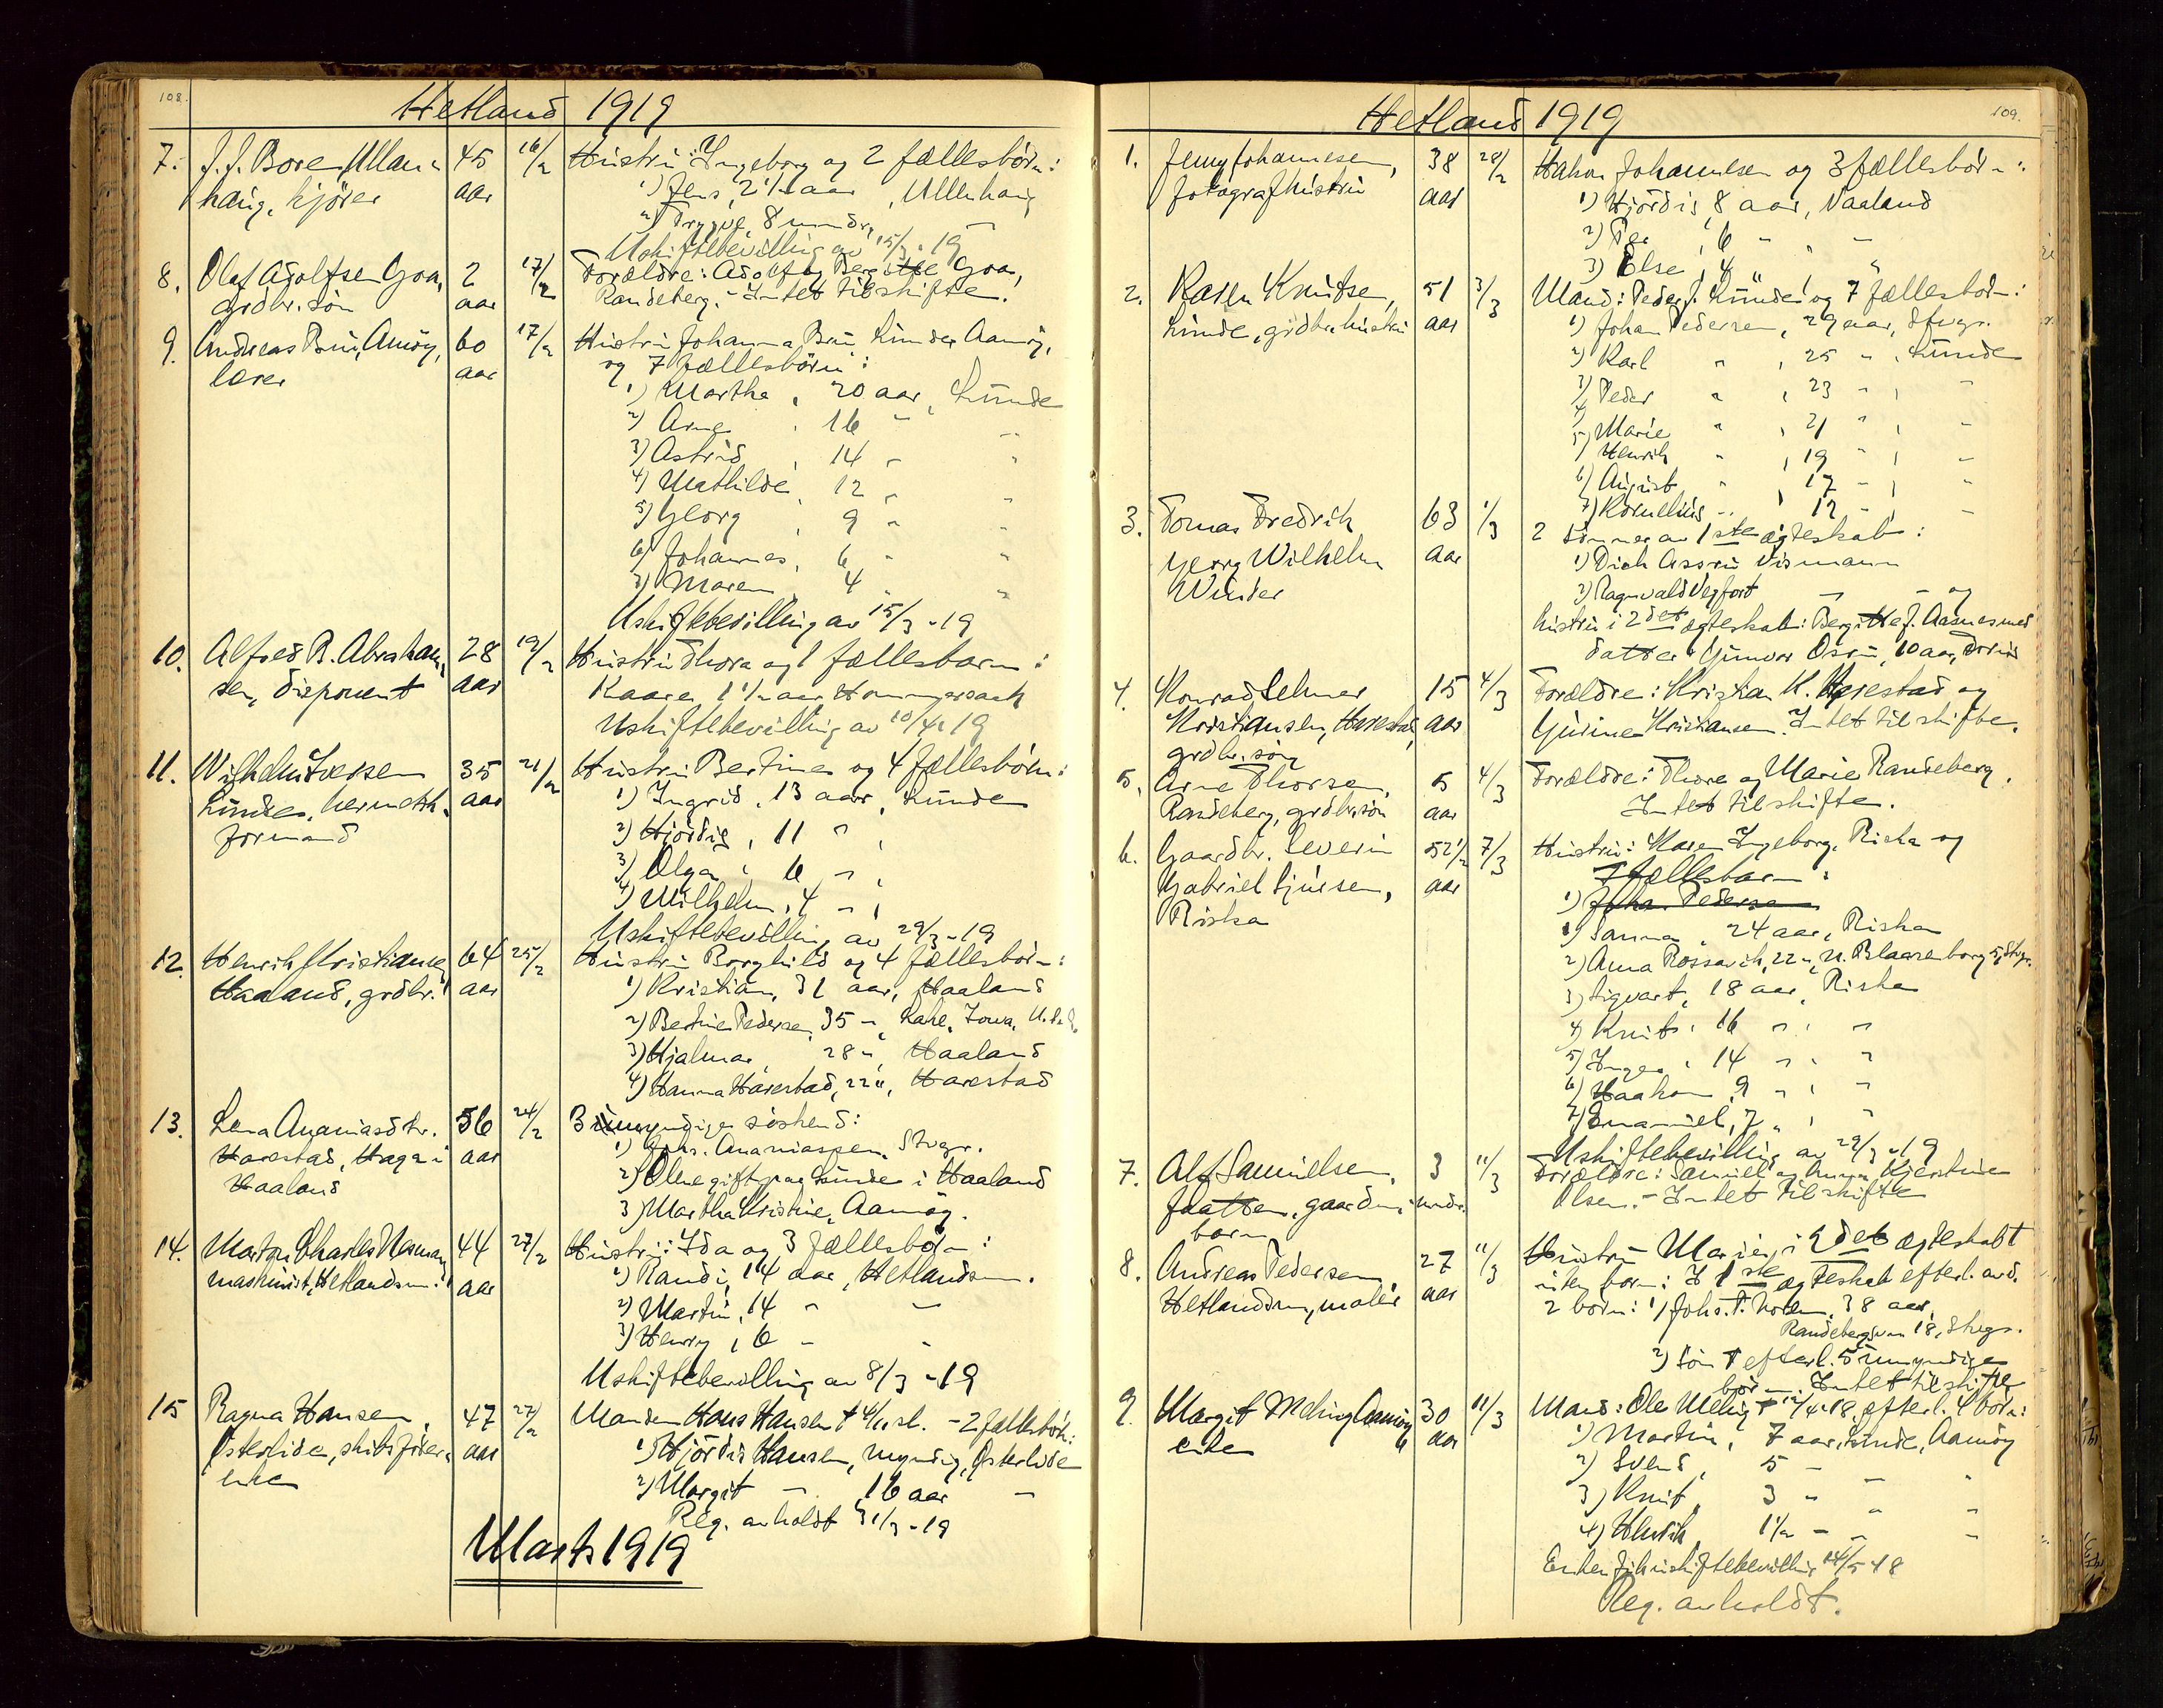 108.
Hetland 1919
7. J. J. Bore, Ullan- 45 16/2 Hustru: Ingeborg og 2 fællesbørn:
haug, kjører aar 1) Jens, 2 1/2 aar, Ullenhaug
2) Trygve, 8 mndr. "
Uskiftebevilling av 15/3-19
8. Olaf Adolfsen Goa, 2 17/2 Forældre: Adolf og Bergitte Goa,
grdbr. søn aar Randeberg. - Intet til skifte.
9. Andreas Bru, Amøy, 60 17/2 Hustru Johanna Bru Lunde Aamøy,
lærer aar og 7 fællesbørn:
1) Martha, 20 aar, Lunde
2) Arne, 16 " "
3) Astrid, 14 " "
4) Mathilde, 12 " "
5) Georg, 9 " "
6) Johannes, 6 " "
7) Maren, 4 " "
Uskiftebevilling av 15/3-19
10. Alfred B. Abraham- 28 19/2 Hustru Thora og 1 fællesbarn:
sen, disponent aar Kaare, 1 1/2 aar
Uskiftebevilling av 10/4-19
11. Wilhelm Iversen 35 21/2 Hustru Bertine og 4 fællesbørn:
Lunde, hermetik- aar 1) Ingrid, 13 aar, Lunde
formand 2) Hjørdis, 11 "
3) Olga, 6 "
4) Wilhelm, 4 "
Uskiftebevilling av 29/3-19
12. Henrik Kristiansen 64 25/2 Hustru Borghild og 4 fællesbørn:
Haaland, grdbr. aar 1) Kristian, 31 aar, Haaland
2) Bertine Pedersen, 35 ", Lake, Iowa, U.S.A.
3) Hjalmar 28 ", Haaland
4) Hanna Harestad, 22 ", Harestad
13. Lena Ananiasdtr. 56 24/2 3 myndige søskend:
Harestad, Haga i aar 1) Johs. Ananiassen, Stvgr.
Haaland 2) Oline gift paa Lunde i Haaland
3) Martha Kristine, Aamøy.
14. Morten Charles Nesman, 44 27/2 Hustru: Ida og 3 fællesbørn:
maskinist, Hetlandsm. aar 1) Randi, 14 aar, Hetlandsm.
2) Martin, 14 " "
3) Henry, 6 " "
Uskiftebevilling av 8/3-19
15 Ragna Hansen, 47 27/2 Manden Hans Hansen † 4/11 sl. - 2 fællesbørn:
Østerlide, skibsfører- aar 1) Hjørdis Hansen, myndig, Østerlide
enke 2) Margit " 16 aar "
Reg. avholdt 31/3-19
Marts 1919
109.
Hetland 1919
1. Jenny Johannesen, 38 28/2 Hakon Johannesen og 3 fællesbørn:
fotografhustru aar 1) Hjørdis, 8 aar, Vaaland
2) Per, 6 " "
3) Else, 4 " "
2. Karen Knutsen, 51 3/3 Mand: Peder J. Lunde og 7 fællesbørn:
Lunde, grdbr. hustru aar 1) Johan Pedersen, 29 aar, Stvgr.
2) Karl ", 25 ", Lunde
3) Peder ", 23 ", "
4) Marie ", 21 ", "
5) Henrik ", 19 ", "
6) August ", 17 ", "
7) Kornelius ", 12 ", "
3. Tomas Fredrik 63 1/3 2 sønner av 1ste ægteskab:
Georg Wilhelm aar 1) Dick Vismann
Winder 2) Ragnvald " " og
hustru i 2det ægteskab: Bergitte J. Aasnes med
datter Gunvor 10 aar,
4. Konrad Selmer 15 4/3 Forældre: Kristian K. Harestad og
Kristiansen, Harestad, aar Gurine Kristiansen. Intet til skifte.
grdbr. søn
5. Arne Thorsen, 5 4/3 Forældre: Thore og Marie Randeberg.
Randeberg, grdbr. søn aar Intet til skifte.
6. Gaardbr. Severin 52 1/2 7/3 Hustru: Karen Ingeborg, Riska og
Gabriel Sjursen, aar 7 fællesbarn:
Riska 1) Johan Pedersen
1) Sanna, 24 aar, Riska
2) Anna Rossavik, 22 ", N. Blaasenborg 5, Stvgr.
3) Sigvart, 18 aar, Riska
4) Knut, 16 ", "
5) Inger, 14 ", "
6) Haakon, 9 ", "
7) Emanuel, 7 ", "
Uskiftebevilling av 29/3-19
7. Alf Samuelsen, 3 11/3 Forældre: Samuel og Anna Kjerstine
Flatten, gaardm. mndr. Olsen. - Intet til skifte
barn
8. Andreas Pedersen, 27 11/3 Hustru Marie, i 2det ægteskab
Hetlandsm., maler aar uten børn: I 1ste ægteskab efterl. avd.
2 børn: 1) Johs. P. 38 aar,
Randebergsvn 18, Stvgr.
2) Søn † efterl. 5 umyndige
børn - Intet til skifte
9. Margit Meling Aamøy 30 11/3 Mand: Ole Meling † 12/4-18, efterl. 4 børn:
enke aar 1) Martin, 7 aar, Lunde, Aamøy
2) Svend, 5 " " "
3) Knut, 3 " " "
4) Henrik, 1 1/2 " " "
Enken fik uskiftebevilling 14/5 18
Reg. avholdt.